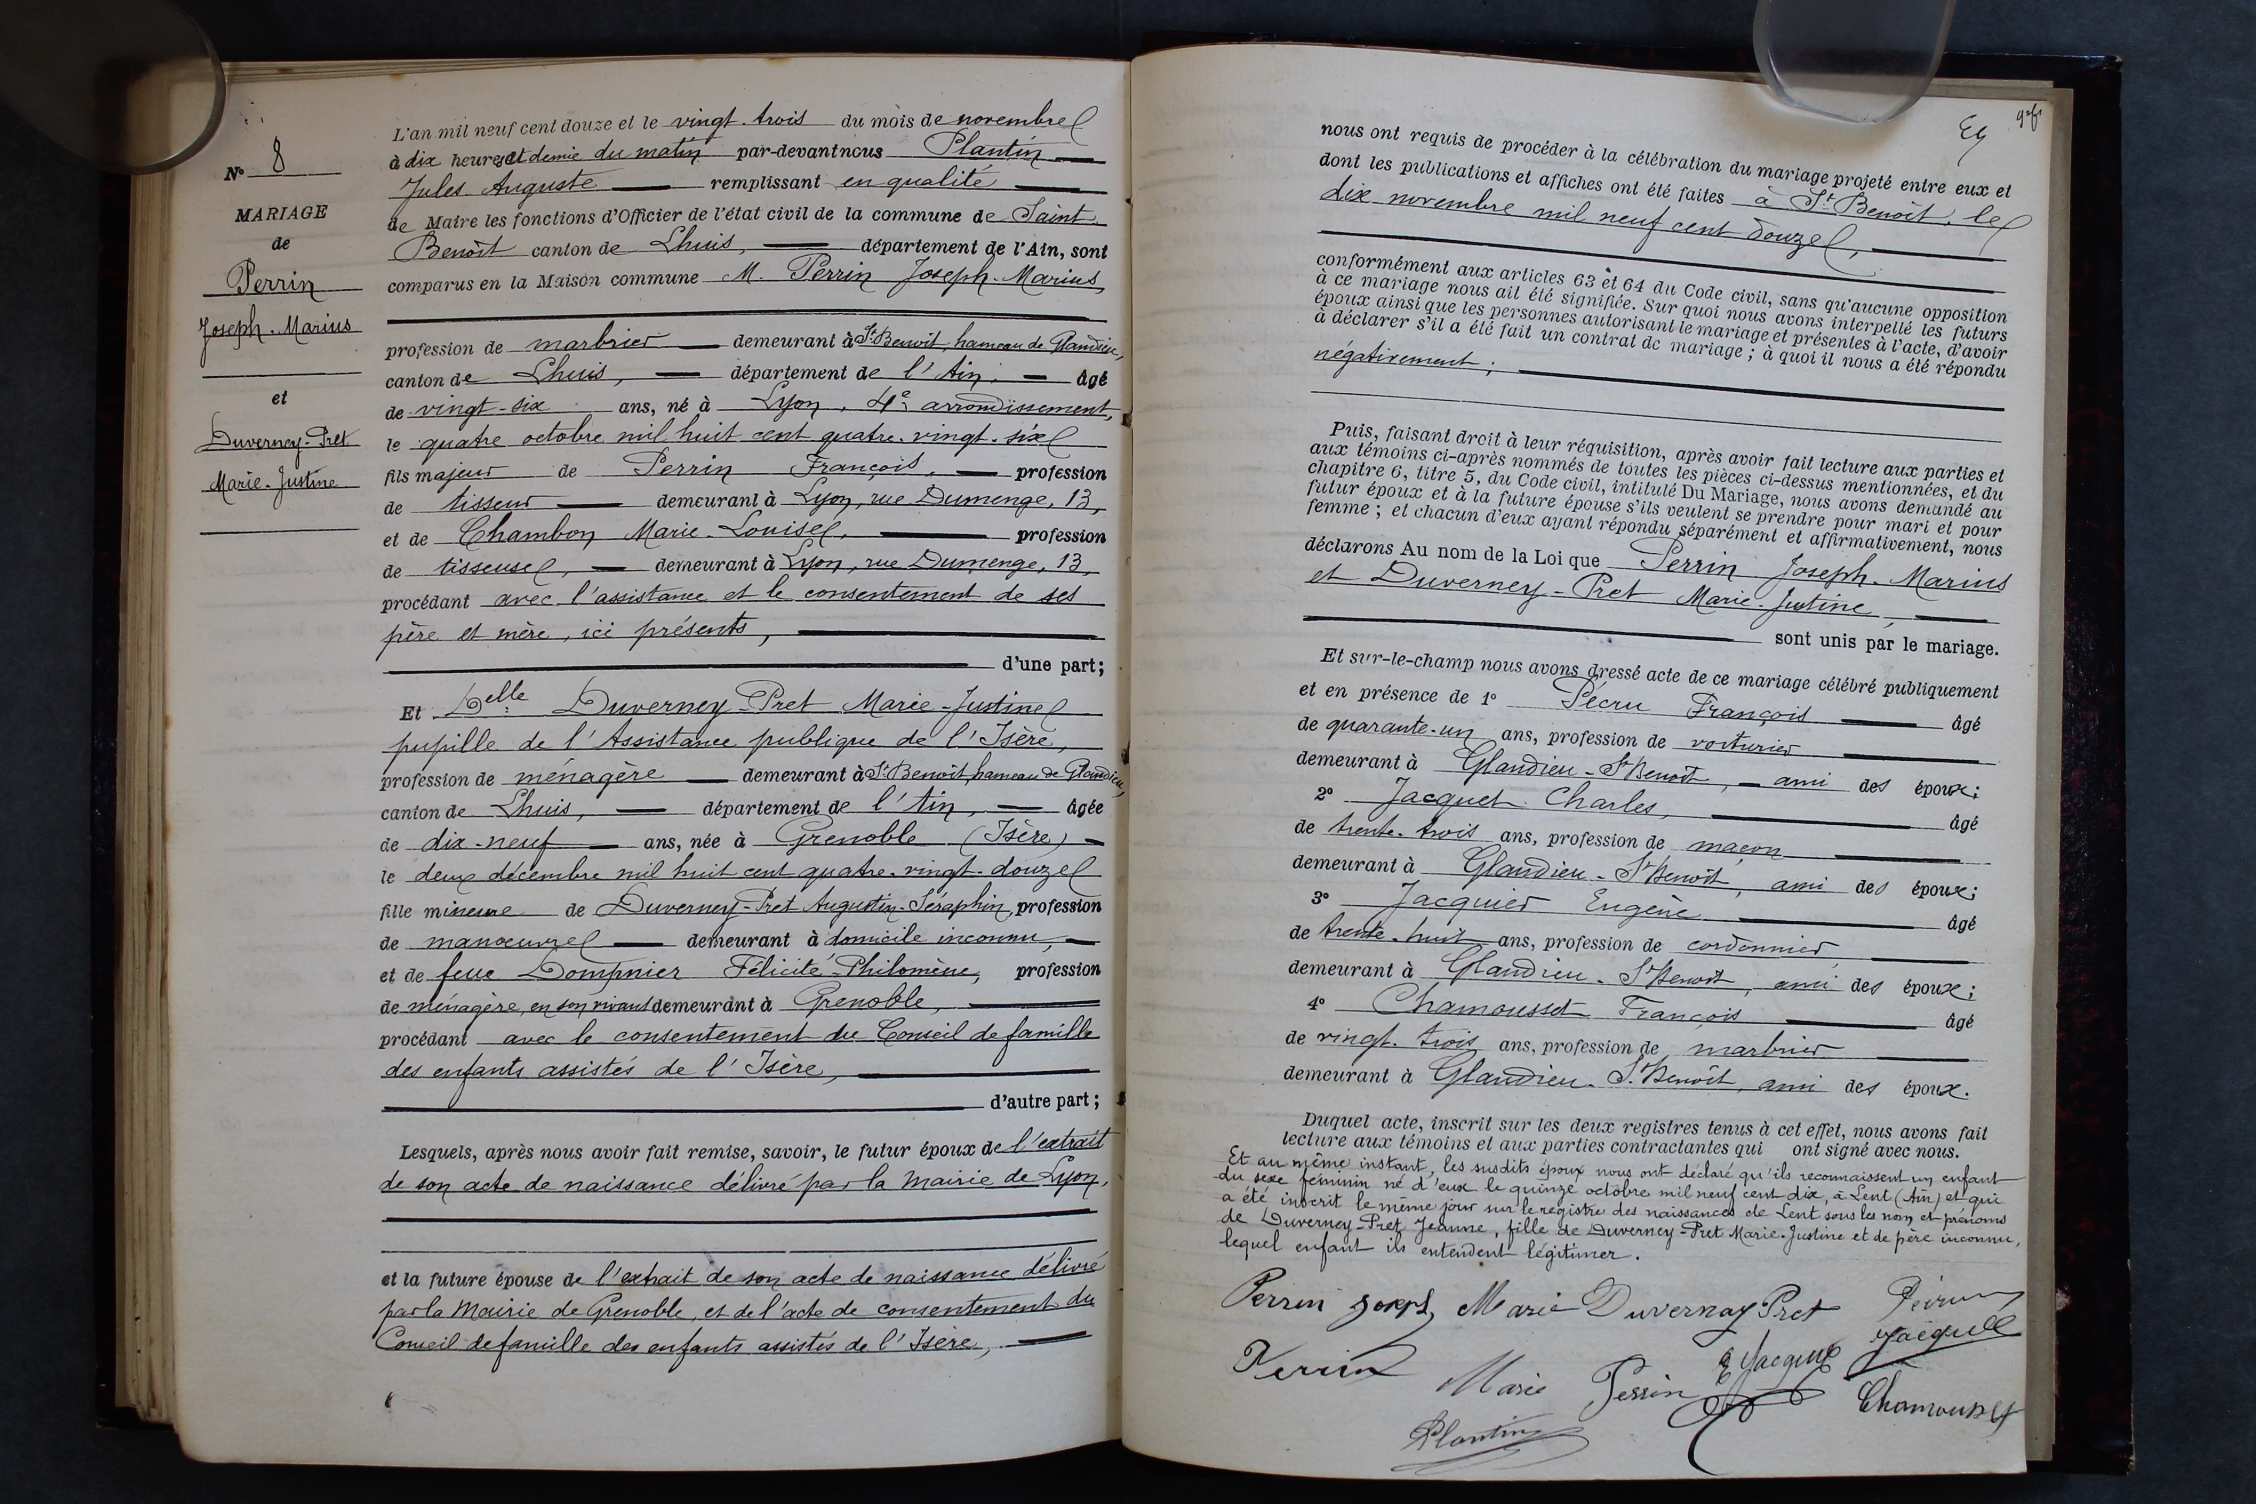 N° 8
MARIAGE
de
Perrin
Joseph-Marius
et
Duverney-Pret
Marie-Justine
L'an mil neuf cent douze et le vingt-trois du mois de novembre
à dix heures et demie du matin par-devant nous Plantin
Jules Auguste remplissant en qualité
de Maire les fonctions d'Officier de l'état civil de la commune de Saint-
Benoît canton de Lhuis, département de l'Ain, sont
comparus en la Maison commune M. Perrin Joseph-Marius,
profession de marbrier demeurant à St-Benoît, hameau de Glandieu,
canton de Lhuis, département de l'Ain, âgé
de vingt-six ans, né à Lyon, 4e arrondissement,
le quatre octobre mil huit cent quatre-vingt-six
fils majeur de Perrin François, profession
de tisseur demeurant à Lyon, rue Dumenge, 13,
et de Chambon Marie-Louise, profession
de tisseuse, demeurant à Lyon, rue Dumenge, 13,
procédant avec l'assistance et le consentement de ses
père et mère, ici présents,
d'une part;
Et Delle Duverney-Pret Marie-Justine
pupille de l'Assistance publique de l'Isère,
profession de ménagère demeurant à St-Benoît, hameau de Glandieu,
canton de Lhuis, département de l'Ain, âgée
de dix-neuf ans, née à Grenoble (Isère)
le deux décembre mil huit cent quatre-vingt-douze
fille mineure de Duverney-Pret Augustin-Séraphin, profession
de manoeuvre demeurant à domicile inconnu,
et de feue Dompnier Félicité-Philomène, profession
de ménagère, en son vivant demeurant à Grenoble,
procédant avec le consentement du Conseil de famille
des enfants assistés de l'Isère,
d'autre part;
Lesquels, après nous avoir fait remise, savoir, le futur époux de l'extrait
de son acte de naissance délivré par la Mairie de Lyon,
et la future épouse de l'extrait de son acte de naissance délivré
par la Mairie de Grenoble, et de l'acte de consentement du
Conseil de famille des enfants assistés de l'Isère,
nous ont requis de procéder à la célébration du mariage projeté entre eux et
dont les publications et affiches ont été faites à St-Benoît, le
dix novembre mil neuf cent douze,
conformément aux articles 63 et 64 du Code civil, sans qu'aucune opposition
à ce mariage nous ait été signifiée. Sur quoi nous avons interpellé les futurs
époux ainsi que les personnes autorisant le mariage et présentes à l'acte, d'avoir
à déclarer s'il a été fait un contrat de mariage; à quoi il nous a été répondu
négativement;
Puis, faisant droit à leur réquisition, après avoir fait lecture aux parties et
aux témoins ci-après nommés de toutes les pièces ci-dessus mentionnées, et du
chapitre 6, titre 5, du Code civil, intitulé Du Mariage, nous avons demandé au
futur époux et à la future épouse s'ils veulent se prendre pour mari et pour
femme; et chacun d'eux ayant répondu séparément et affirmativement, nous
déclarons Au nom de la Loi que Perrin Joseph-Marius
et Duverney-Pret Marie-Justine,
sont unis par le mariage.
Et sur-le-champ nous avons dressé acte de ce mariage célébré publiquement
et en présence de 1° Pécru François âgé
de quarante-un ans, profession de voiturier
demeurant à Glandieu-St Benoît, ami des époux;
2° Jacquet Charles, âgé
de trente-trois ans, profession de maçon
demeurant à Glandieu-St Benoît, ami des époux;
3° Jacquier Eugène âgé
de trente-huit ans, profession de cordonnier
demeurant à Glandieu-St Benoît, ami des époux;
4° Chamousset François âgé
de vingt-trois ans, profession de marbrier
demeurant à Glandieu-St Benoît, ami des époux.
Duquel acte, inscrit sur les deux registres tenus à cet effet, nous avons fait
lecture aux témoins et aux parties contractantes qui ont signé avec nous.
Et au même instant, les susdits époux nous ont déclaré qu'ils reconnaissent un enfant
du sexe féminin né d'eux le quinze octobre mil neuf cent dix, à Lent (Ain) et qui
a été inscrit le même jour sur le registre des naissances de Lent sous les nom et prénoms
de Duverney-Pret Jeanne, fille de Duverney-Pret Marie-Justine et de père inconnu,
lequel enfant ils entendent légitimer.
Perrin Joseph Marie Duvernay-Pret
Jacquet
Perrin Marie Perrin E Jacquier
Chamousset
Plantin